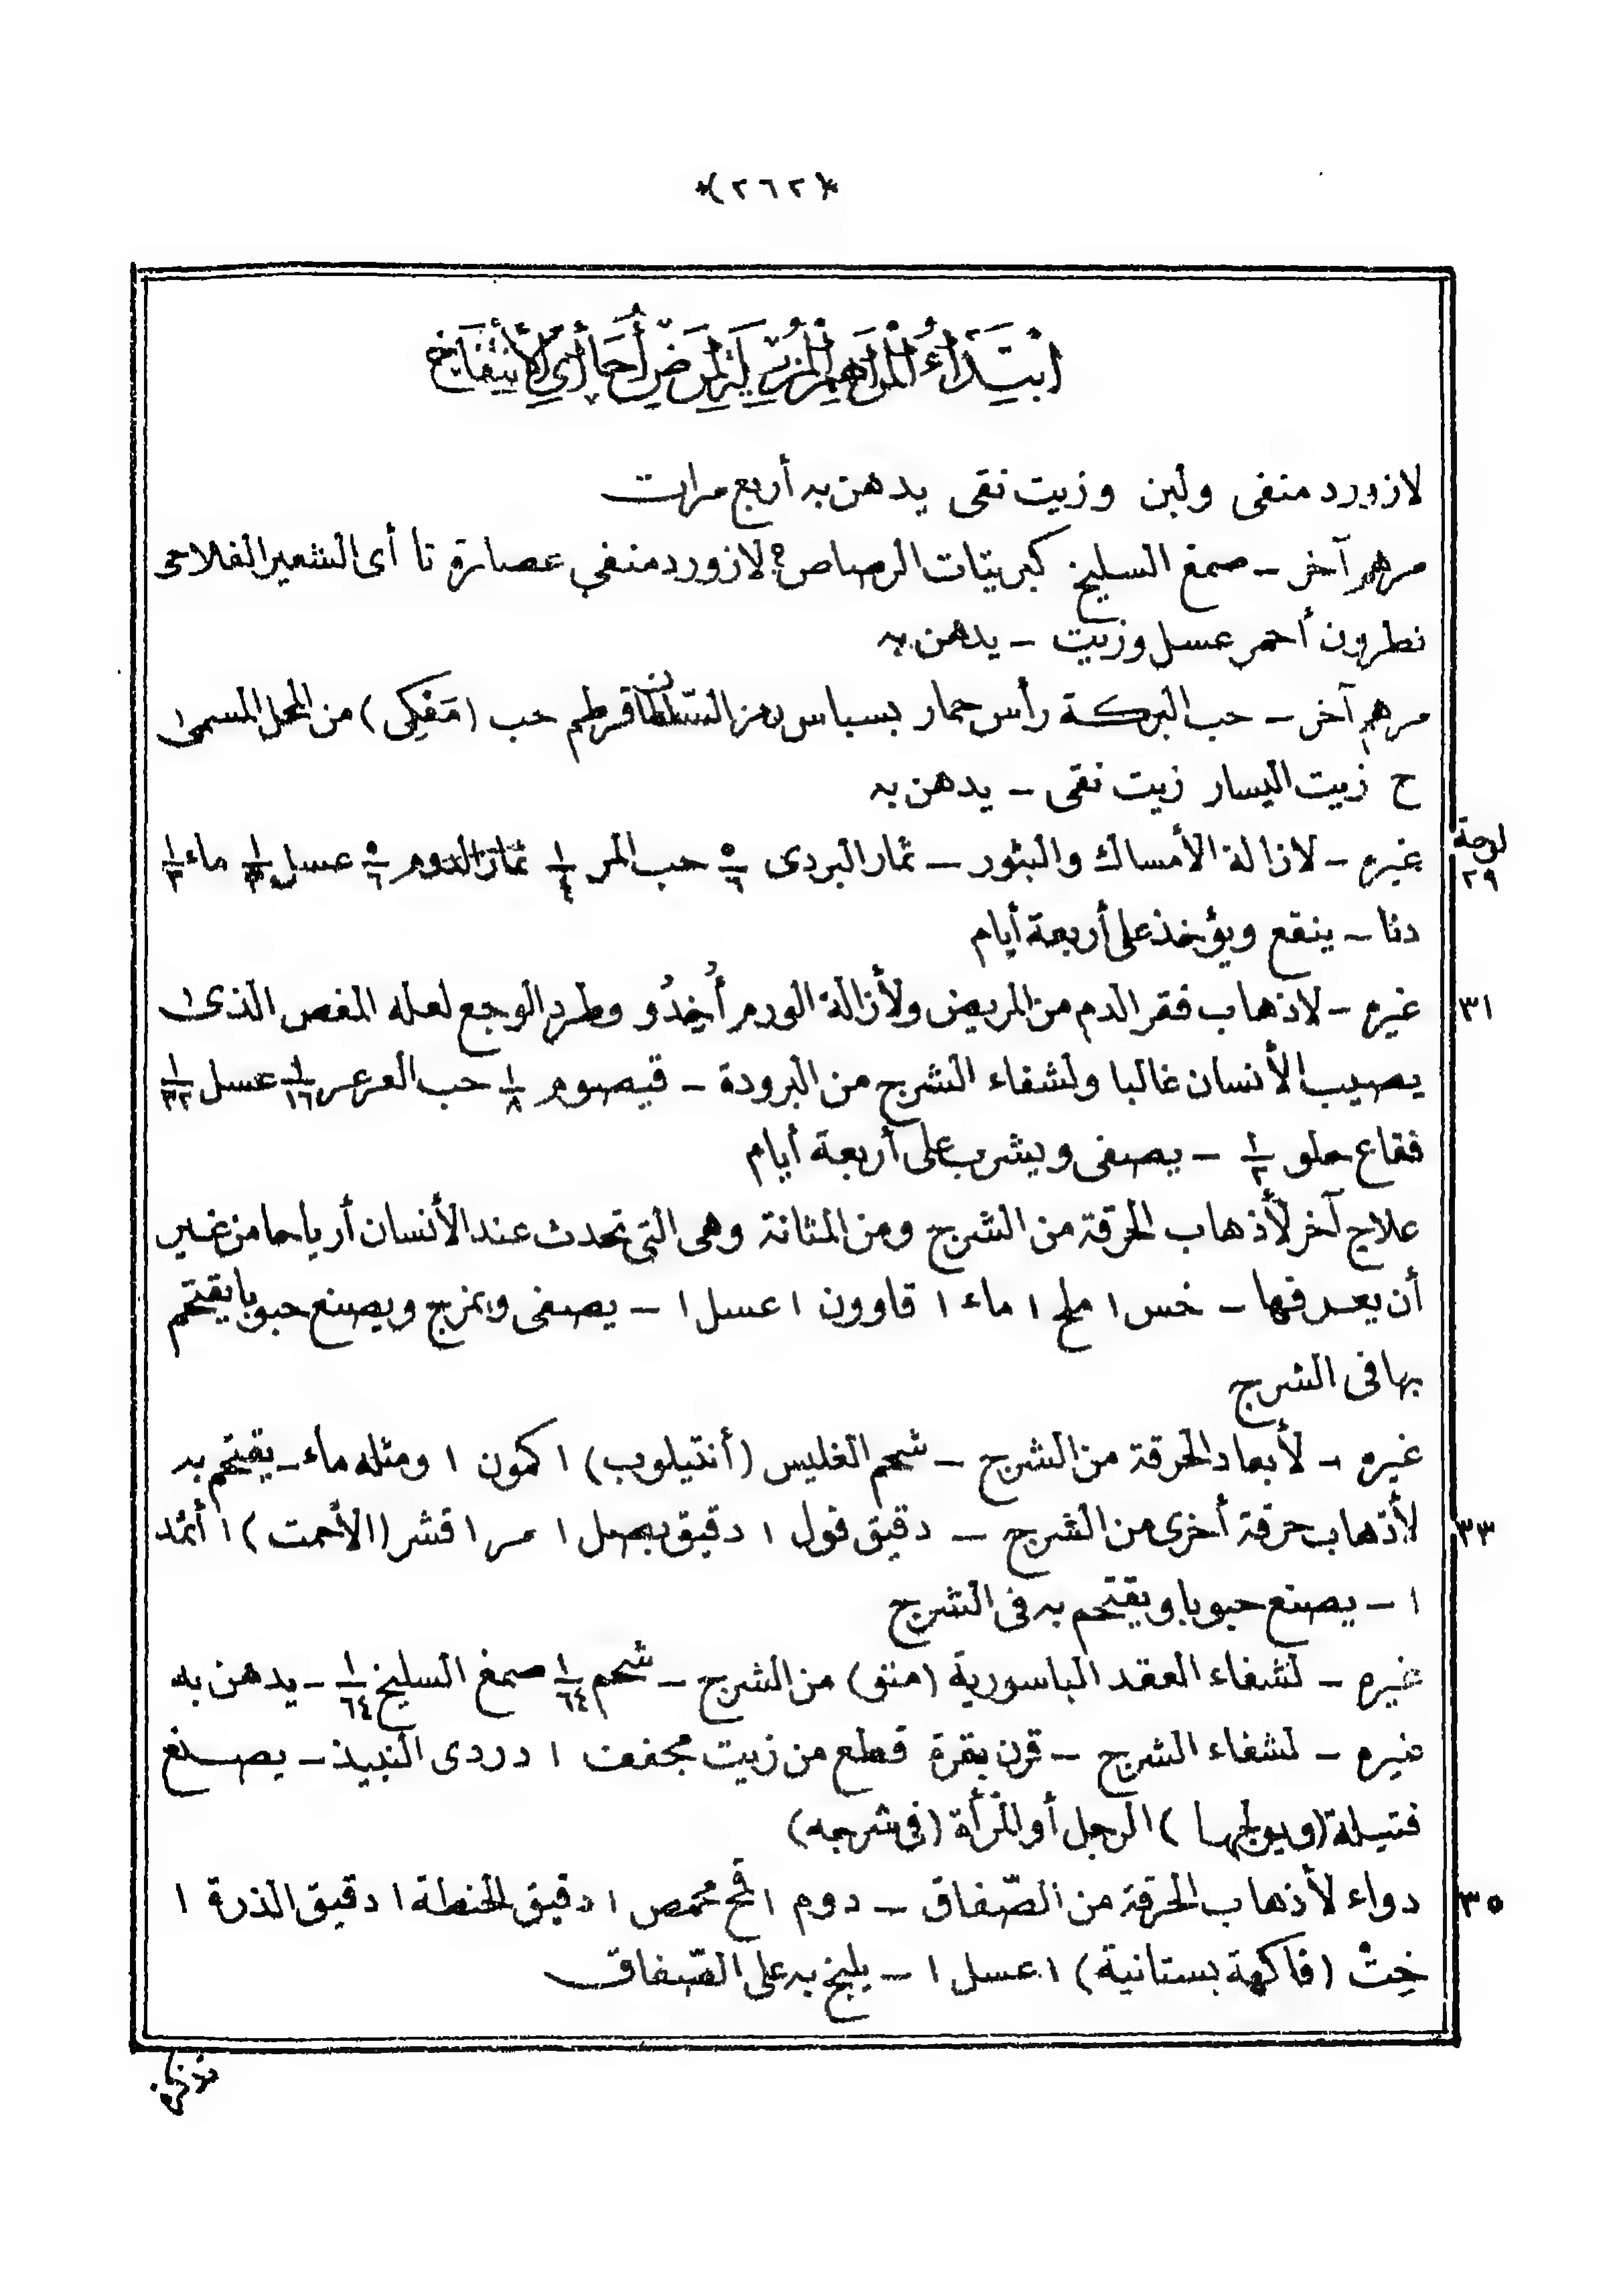 *(٢٦٢)*
ابْتِدَاءُ الْمَرَاهِمِ الْمُزِيلَةِ لِمَرَضِ أُحَا أَيْ الْأَنْتِفَاخِ
لازورد منفى ولبن وزيت نقى يدهن به أربع مرات
مرهم آخر ــ صمغ السليخ كبريتات الرصاص؟ لازورد منفي عصارة تا أى الشعير الفلاحى
نطرون أحمر عسل وزيت ــ يدهن به
مرهم آخر ــ حب البركة رأس حمار بسباس قرطم حب (مَفكِى) من المحل المسمى
ح زيت اليسار زيت نقى ــ يدهن به
لوحة ٢٩
غيره ــ لازالة الأمساك والبثور ــ ثمار البردى ٥/٦ حب المر ١/٤ ثمار الدوم ٥/٦ عسل ماء ١/٣
دنا ــ ينقع ويؤخذ على أربعة أيام
٣١
غيره ــ لاذهاب فقر الدم من المريض ولأزالة الورم أُخِدُو وطرد الوجع لعله المغص الذى
يصيب الأنسان غالبا ولشفاء الشرج من البرودة ــ قيصوم ١/٨ حب العرعر ١/١٦ عسل ١/٣٢
فقاع حلو ١/٢ ــ يصفى ويشرب على أربعة أيام
علاج آخر لأذهاب الحرقة من الشرج ومن المثانة وهى التى تحدث عند الأنسان أرياحا من غير
أن يعرفها ــ خس ١ ملح ١ ماء ١ قاوون ١ عسل ١ ــ يصفى ويمزج ويصنع حبوبا يقتحم
بها فى الشرج
غيره ــ لأبعاد الحرقة من الشرج ــ شحم الغليس (أنتيلوب) ١ كمون ١ ومثله ماء ــ يقتحم به
٣٣
لأذهاب حرقة أخرى من الشرج ــ دقيق فول ١ دقيق بصل ١ مر ١ قشر (الأحمت) ١ أثمد
١ ــ يصنع حبوبا ويقتحم به فى الشرج
غيره ــ لشفاء العقد الباسورية (منثو) من الشرج ــ شحم ١/٦٤ صمغ السليخ ١/٦٤ ــ يدهن به
غيره ــ لشفاء الشرج ــ قرن بقرة قطع من زيت مجففت ١ دردى النبيذ ــ يصنع
فتيلة (ويولجها) الرجل أو المرأة (فى شرجه)
٣٥
دواء لأذهاب الحرقة من الصّفاق ــ دوم ١ قمح محمص ١ دقيق الحنطة ١ دقيق الذرة ١
خِتْ (فاكهة بستانية) ١ عسل ١ ــ يلبخ به على الصّفاق